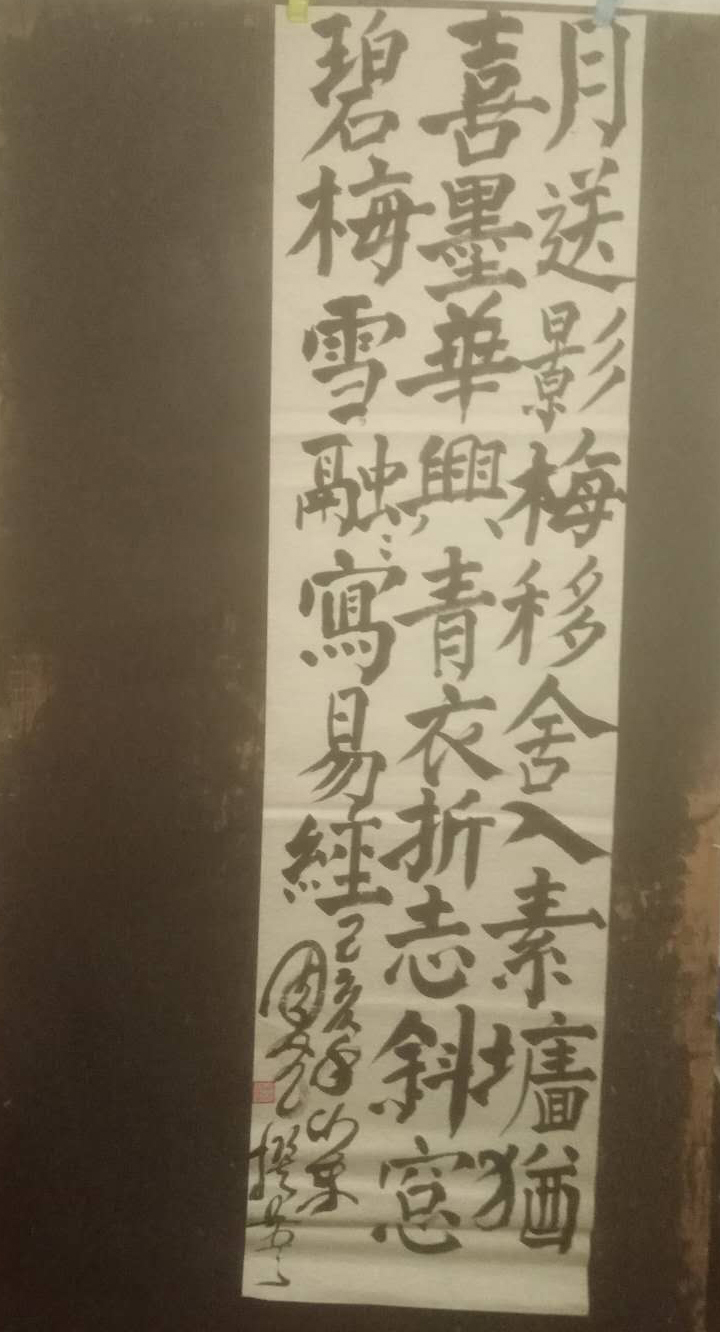 月送影梅移舍入素猶
喜墨華興青衣折志斜窓
碧梅雪融〻寫易經
己亥年
撰書